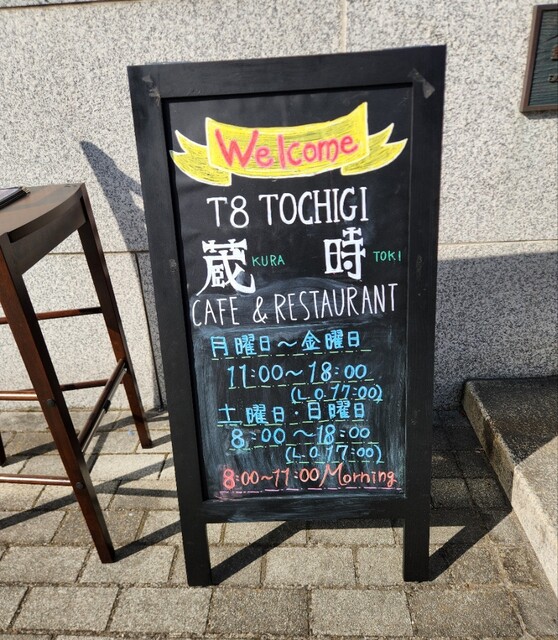 Welcome
T8 TOCHIGI
蔵 KURA 時 TOKI
CAFE & RESTAURANT
月曜日～金曜日
11:00～18:00
(L.O.17:00)
土曜日・日曜日
8:00～18:00
(L.O.17:00)
8:00～11:00 Morning